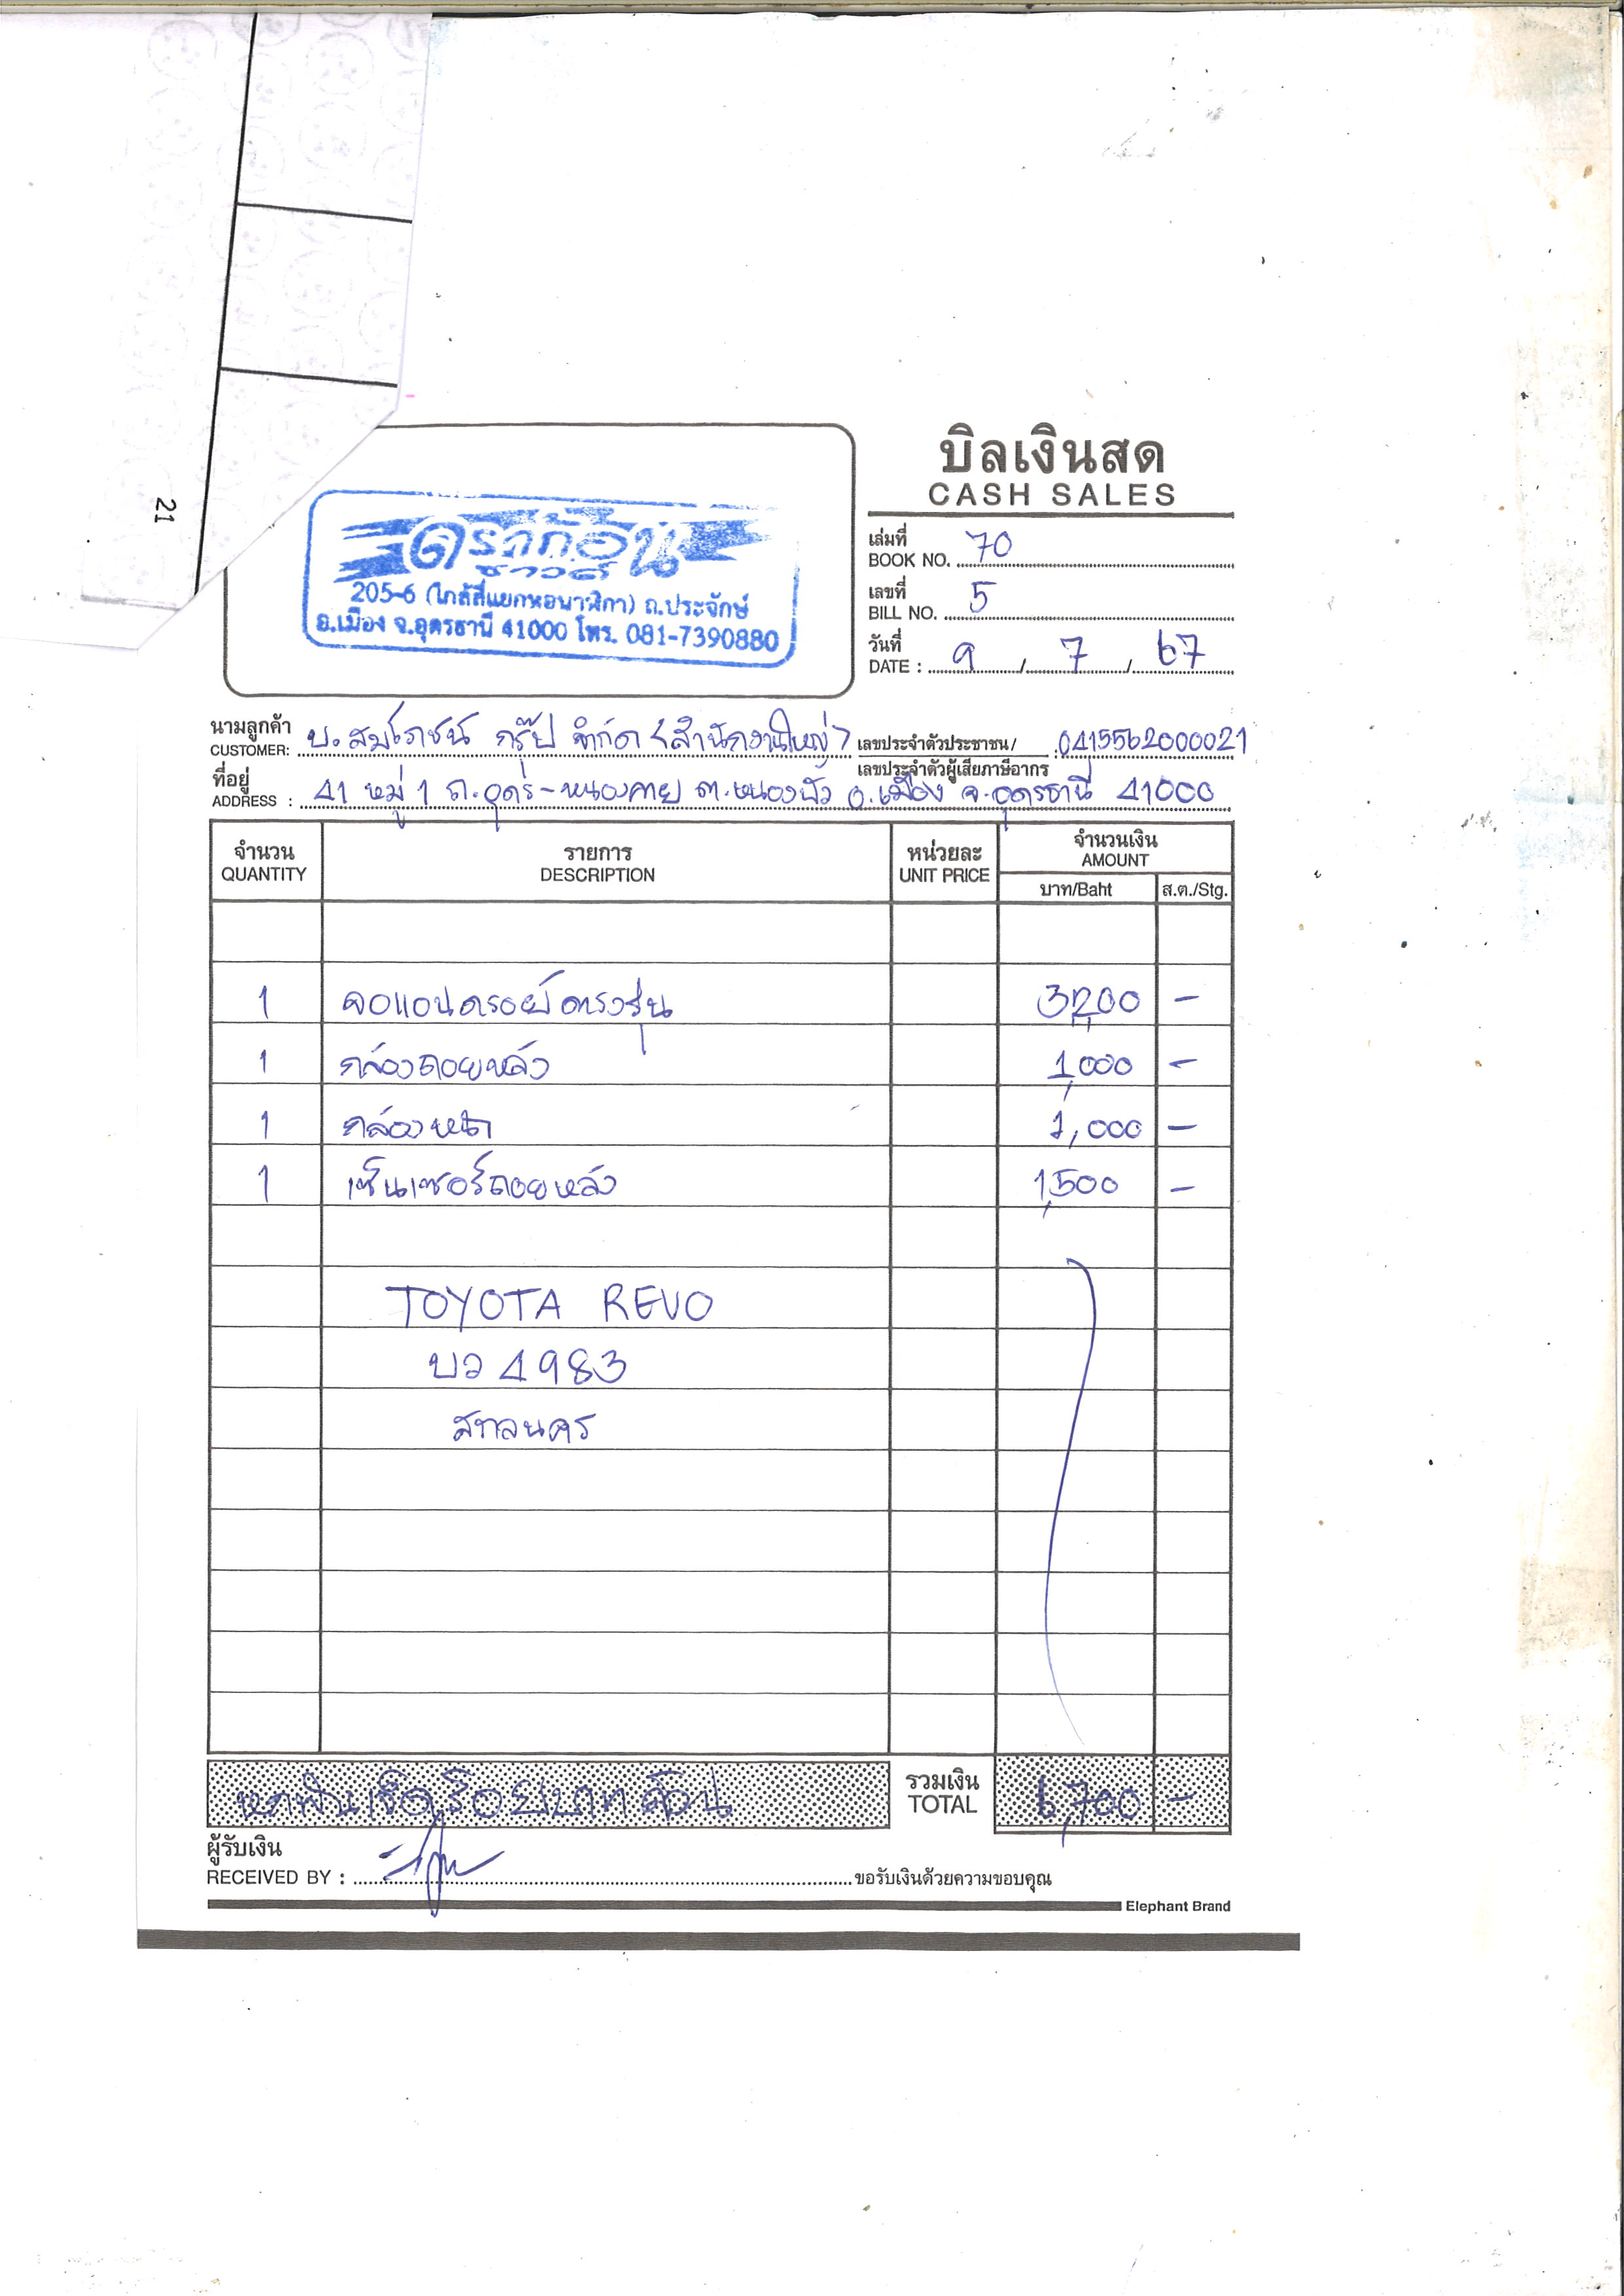 21
บิลเงินสด
CASH SALES
ดราก้อน
ซาวด์
205-6 (ใกล้สี่แยกหอนาฬิกา) ถ.ประจักษ์
อ.เมือง จ.อุดรธานี 41000 โทร. 081-7390880
เล่มที่
BOOK NO. 70
เลขที่
BILL NO. 5
วันที่
DATE : 9 / 7 / 67
นามลูกค้า
CUSTOMER: บ.สมโภชน์ กรุ๊ป จำกัด (สำนักงานใหญ่) เลขประจำตัวประชาชน/ 0415562000021
เลขประจำตัวผู้เสียภาษีอากร
ที่อยู่
ADDRESS : 41 หมู่ 1 ถ.อุดร-หนองคาย ต.หนองบัว อ.เมือง จ.อุดรธานี 41000
จำนวน รายการ หน่วยละ จำนวนเงิน
QUANTITY DESCRIPTION UNIT PRICE AMOUNT
บาท/Baht ส.ต./Stg.
1 จอแอนดรอย์ตรงรุ่น 3,200 -
1 กล้องถอยหลัง 1,000 -
1 กล้องหน้า 1,000 -
1 เซ็นเซอร์ถอยหลัง 1,500 -
TOYOTA REVO
บว 4983
สกลนคร
หกพันเจ็ดร้อยบาทถ้วน รวมเงิน 6,700 -
TOTAL
ผู้รับเงิน
RECEIVED BY : ขอรับเงินด้วยความขอบคุณ
Elephant Brand